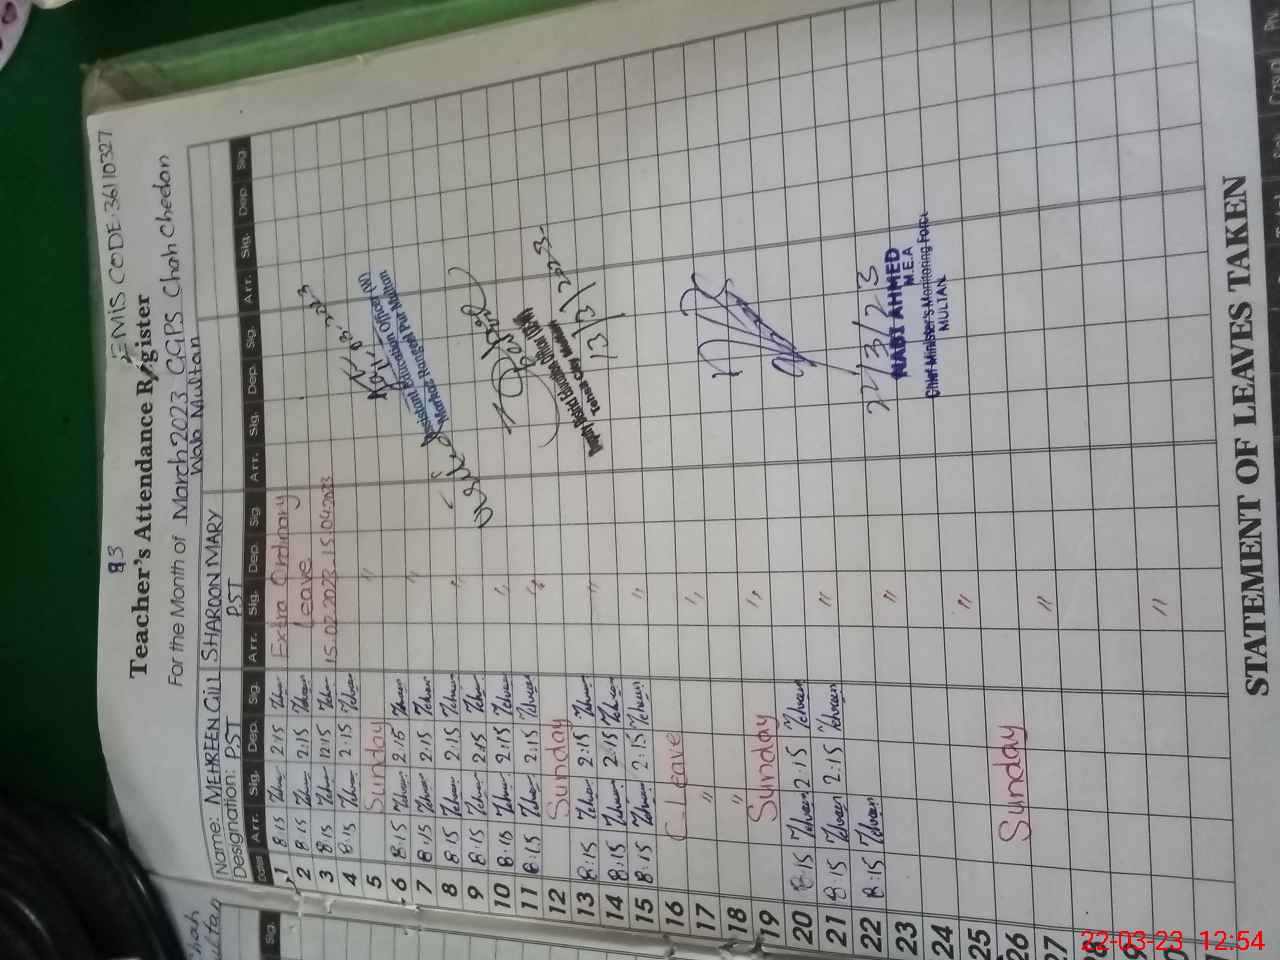 93
Teacher's Attendance Register EMIS CODE:36110327
For the Month of March 2023 GGPS Chah Cheedan
Wala Multan
Name: MEHREEN GILL SHAROON MARY
Designation: PST PST
Dates Arr. Sig. Dep. Sig. Arr. Sig. Dep. Sig. Arr. Sig. Dep. Sig. Arr. Sig. Dep. Sig.
1 8:15 2:15 Extra Ordinary
2 8:15 2:15 Leave
3 8:15 12:15 15.02.2023 15.04.2023
4 8:15 2:15
5 Sunday "
6 8:15 2:15 "
7 8:15 2:15
8 8:15 2:15 "
9 8:15 2:15
10 8:15 2:15 "
11 8:15 2:15 "
12 Sunday
13 8:15 2:15 "
14 8:15 2:15
15 8:15 2:15 "
16 C. Leave
17 " "
18 "
19 Sunday "
20 8:15 2:15
21 8:15 2:15 "
22 8:15
23 "
24
25 "
26 Sunday
27 "
28
Assistant Education Officer (W)
Markaz Rangeel Pur Multan
Deputy District Education Officer (W-EE)
Tehsil City Multan
13/3/2023
22/3/23
NABI AHMED
M.E.A
Chief Minister's Monitoring Force
MULTAN
STATEMENT OF LEAVES TAKEN
Sig.
22-03-23 12:54